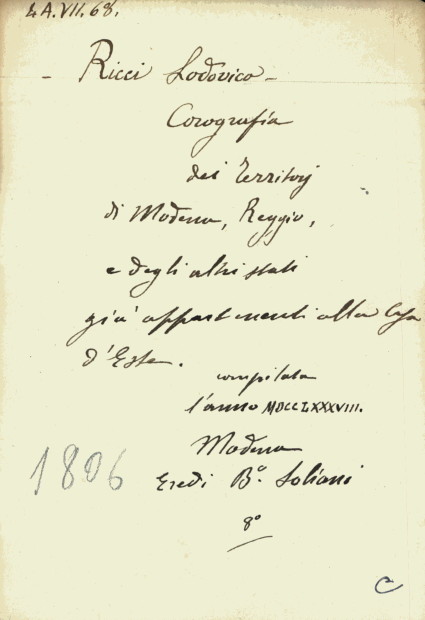 4 A. VII. 68.
- Ricci Lodovico -
Corografia
dei Territorj
di Modena, Reggio,
e degli altri stati
già appartenenti alla Casa
d'Este.
compilata
l'anno MDCCLXXXVIII.
Modena
1806
Eredi B.º Soliani
8º
C